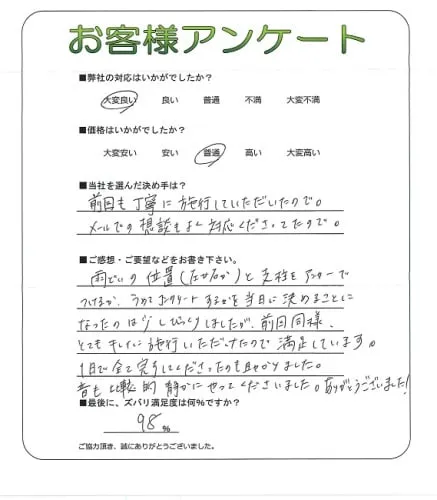 お客様アンケート
■弊社の対応はいかがでしたか?
大変良い 良い 普通 不満 大変不満
■価格はいかがでしたか?
大変安い 安い 普通 高い 大変高い
■当社を選んだ決め手は?
前回も丁寧に施行していただいたので。
メールでの相談もよく対応くださってたので。
■ご感想・ご要望などをお書き下さい。
雨どいの位置(左か右か)と支柱をアンカーで
つけるか、うめてコンクリートするかを当日に決めることに
なったのは少しびっくりしましたが、前回同様、
とてもキレイに施行いただけたので満足しています。
1日で全て完了してくださったのも助かりました。
音も比較的静かにやってくださいました。ありがとうございました!
■最後に、ズバリ満足度は何%ですか?
98 %
ご協力頂き、誠にありがとうございました。